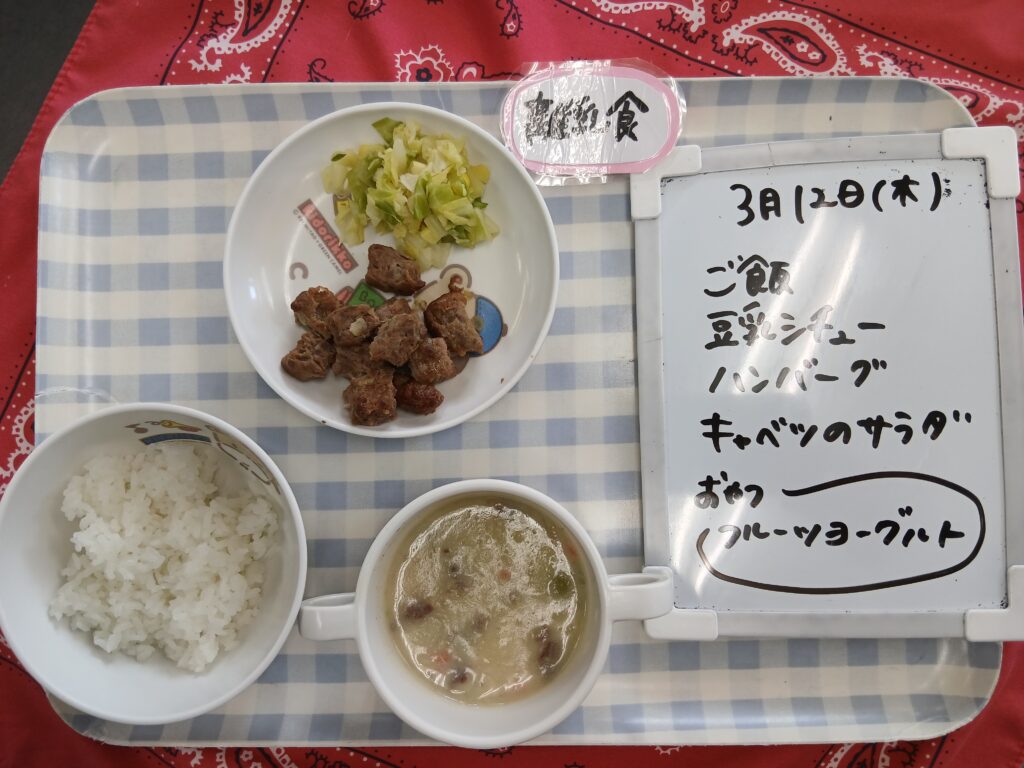 離乳食
3月12日(木)
ご飯
豆乳シチュー
ハンバーグ
キャベツのサラダ
おやつ
フルーツヨーグルト